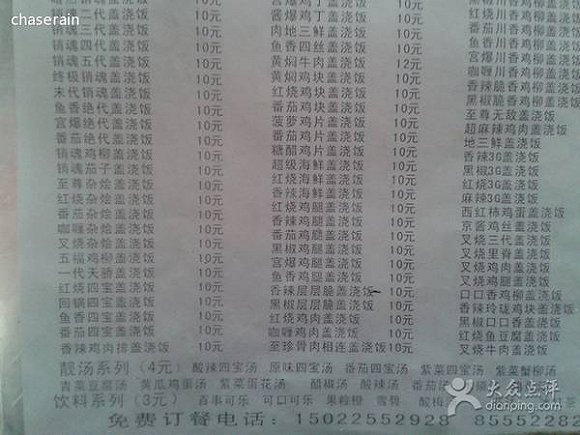 chaserain
暗恋销魂盖浇饭 10元 酱爆鸡丁盖浇饭 10元 宫爆川香鸡柳盖浇饭
销魂二代盖浇饭 10元 酱爆鸡丁盖浇饭 10元 红烧川香鸡柳盖浇饭
销魂三代盖浇饭 10元 肉地三鲜盖浇饭 10元
销魂四代盖浇饭 10元 鱼香四丝盖浇饭 10元 宫爆川香鸡柳盖浇饭
销魂五代盖浇饭 10元 黄焖牛肉盖浇饭 12元 咖喱川香鸡柳盖浇饭
终极销魂盖浇饭 10元 黄焖鸡块盖浇饭 10元 香辣脆香鸡柳盖浇饭
末代销魂盖浇饭 10元 红烧鸡块盖浇饭 10元 黑椒脆香鸡柳盖浇饭
鱼香绝代盖浇饭 10元 番茄鸡块盖浇饭 10元 至尊无敌盖浇饭
宫爆绝代盖浇饭 10元 菠萝鸡片盖浇饭 10元 超麻辣鸡肉盖浇饭
番茄绝代盖浇饭 10元 番茄鸡片盖浇饭 10元 地三鲜盖浇饭
销魂鸡柳盖浇饭 10元 糖醋鸡片盖浇饭 10元 香辣3G盖浇饭
销魂茄子盖浇饭 10元 超级海鲜盖浇饭 10元 黑椒3G盖浇饭
至尊杂烩盖浇饭 10元 红烧海鲜盖浇饭 10元 红烧3G盖浇饭
红烧杂烩盖浇饭 10元 香辣海鲜盖浇饭 10元 麻辣3G盖浇饭
番茄杂烩盖浇饭 10元 红烧鸡腿盖浇饭 10元 西红柿鸡蛋盖浇饭
咖喱杂烩盖浇饭 10元 香辣鸡腿盖浇饭 10元 京酱鸡丝盖浇饭
叉烧杂烩盖浇饭 10元 番茄鸡腿盖浇饭 10元 叉烧三代盖浇饭
五福鸡柳盖浇饭 10元 黑椒鸡腿盖浇饭 10元 叉烧里脊盖浇饭
一代天骄盖浇饭 10元 宫爆鸡腿盖浇饭 10元 叉烧鸡肉盖浇饭
红烧四宝盖浇饭 10元 鱼香鸡腿盖浇饭 10元 叉烧鸡腿盖浇饭
回锅四宝盖浇饭 10元 香辣层层脆盖浇饭 10元 口口香鸡柳盖浇饭
鱼香四宝盖浇饭 10元 黑椒层层脆盖浇饭 10元 香辣玲珑鸡块盖浇饭
番茄四宝盖浇饭 10元 红烧鸡肉盖浇饭 10元 红烧鱼豆腐盖浇饭
香辣鸡肉排盖浇饭 10元 咖喱鸡肉盖浇饭 10元 叉烧牛肉盖浇饭
至珍骨肉相连盖浇饭 10元
靓汤系列（4元） 酸辣四宝汤 原味四宝汤 番茄四宝汤 紫菜四宝汤 紫菜蟹柳汤
青菜豆腐汤 黄瓜鸡蛋汤 紫菜蛋花汤 醋椒汤 酸辣汤
饮料系列（3元） 百事可乐 可口可乐 果粒橙 雪碧
免费订餐电话：15022552928 85552282
大众点评
dianping.com